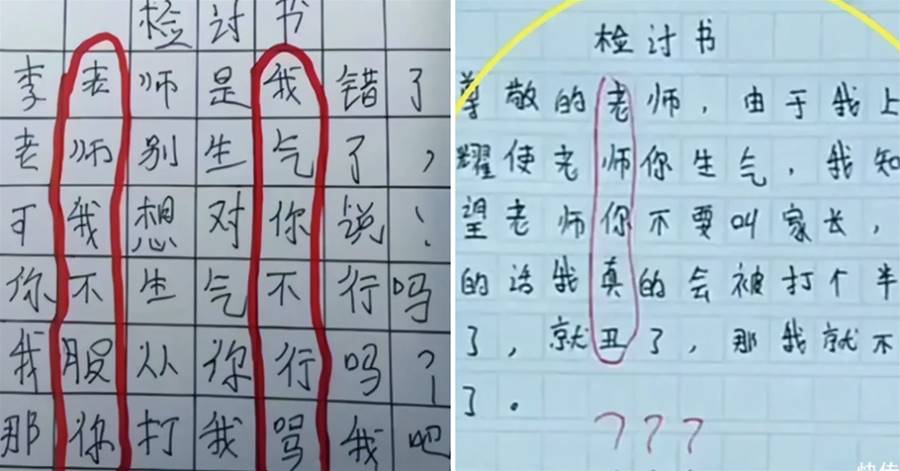 检讨书
李老师是我错了
老师别生气了，
可我想对你说！
你不生气不行吗
我服从你行吗？
那你打我骂我吧
检讨书
尊敬的老师，由于我上
耀使老师你生气，我知
望老师你不要叫家长，
的话我真的会被打个半
了，就丑了，那我就不
了。
？？？